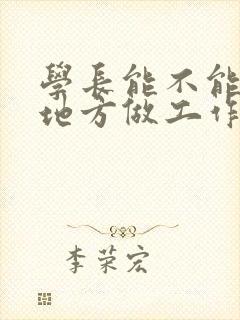 學長能不能
地方做工作
李荣宏